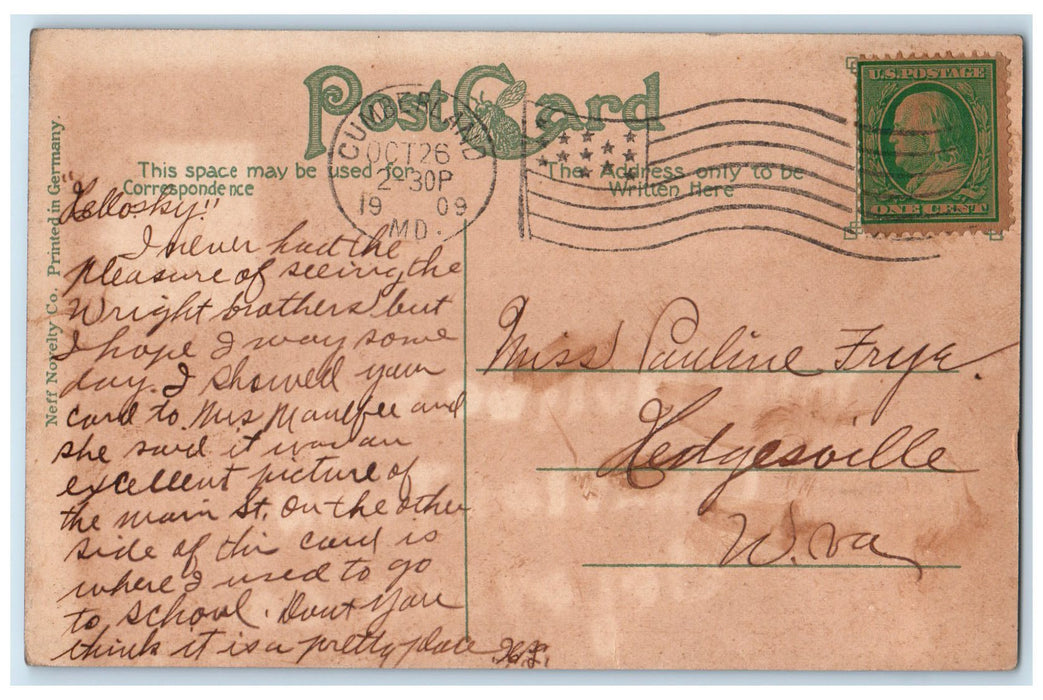 Post Card
CUMBERLAND
OCT 26
2-30P
19 09
MD.
U.S. POSTAGE
ONE CENT
This space may be used for
Correspondence
The Address only to be
Written Here
Neff Novelty Co. Printed in Germany.
"Hellosky"!!
I never had the
pleasure of seeing the
Wright brothers but
I hope I may some
day. I showed your
card to Mrs and
she said it was an
excellent picture of
the main St. On the other
side of this card is
where I used to go
to school. Dont you
think it is a pretty place
Miss Pauline Frye.
Hedgesville
W. va